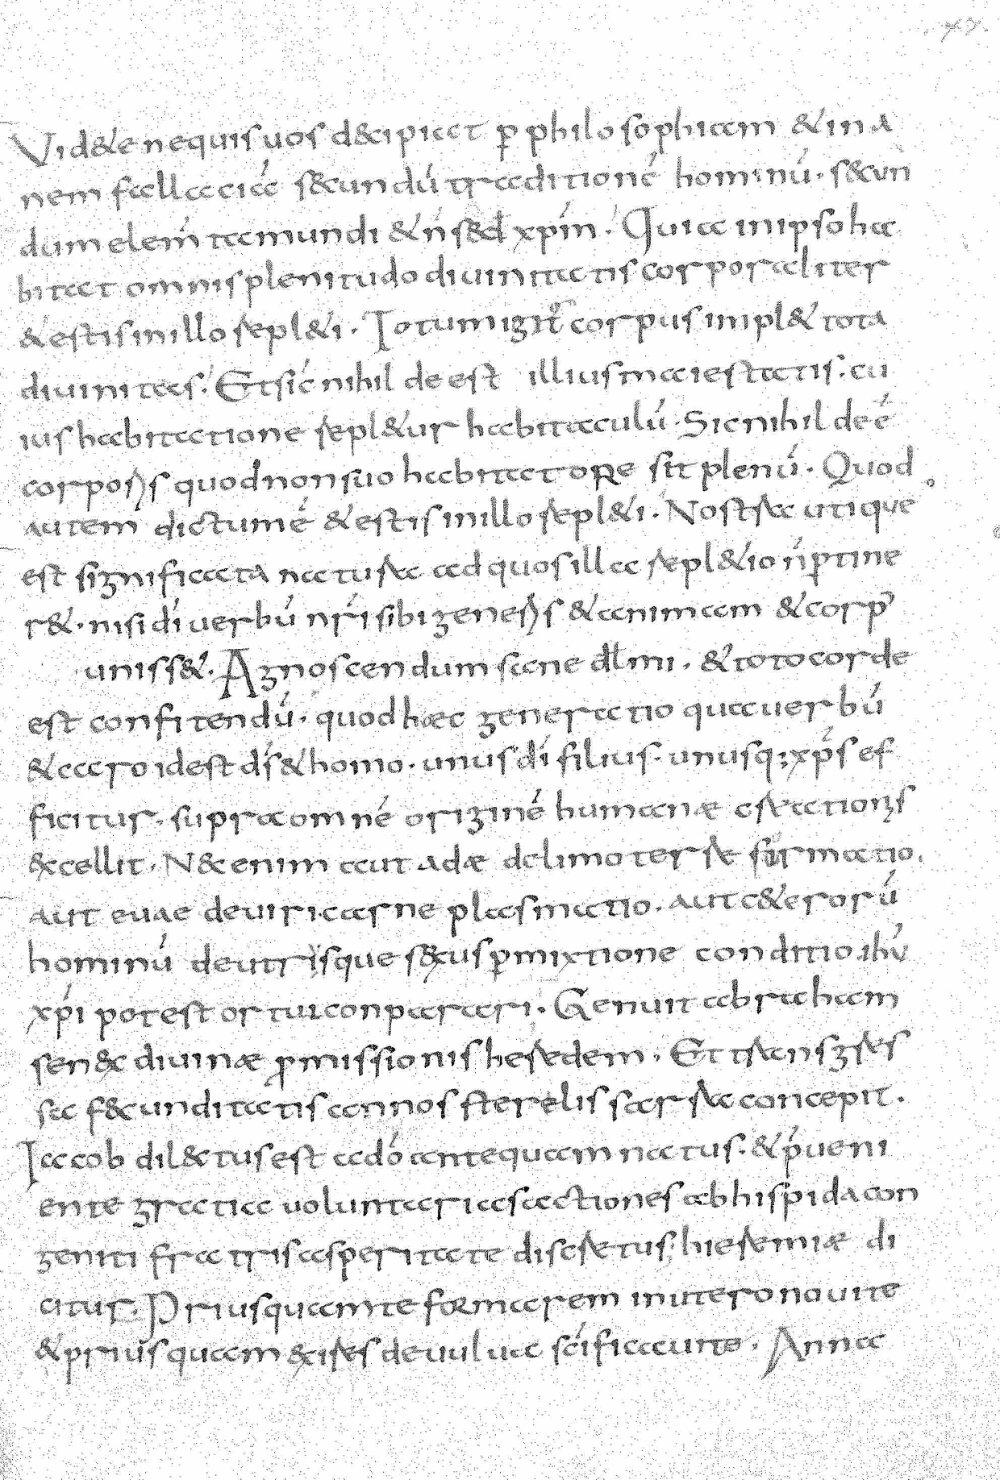 Vid&e nequis uos d&cipiat p philosophiam & ina
nem fallaciá s&cundú traditioné hominú. s&cun
dum elem̄ta mundi & n̄ s&cd xpm̄. Quia inipso ha
bitat omnis plenitudo diuinitatis corporaliter
& estis inillo repl&i. Totum igit᷑ corpus impl& tota
diuinitas. Et sic nihil deest illius maiestatis. cu
ius habitatione repl&ur habitaculū. Sic nihil deē
corporis quod non suo habitatore sit plenū. Quod
autem dictum ē & estis inillo repl&i. Nostra utique
est significata natura ad quos illa repl&io n̄ ptine
r&. nisi dī uerbū nr̄i sibi generis & animam & corp'
uniss&. Agnoscendum sane dl̄mi. & toto corde
est confitendū. quod hæc generatio qua uerbū
& caro idest ds̄ & homo. unus dī filius. unusq; xps̄ ef
ficitur. supra omnē originē humanæ creationis
excellit. Nec enim aut adæ delimo terræ formatio.
aut euae deuiri carne plasmatio. aut c&erorū
hominū deutrisque sexus pmixtione conditio ihū
xpī potest ortui conparari. Genuit abraham
senex diuinæ pmissionis heredem. Et transgres
sa fecunditatis annos sterelis sarra concepit.
Iacob dilectus est ado antequam natus. & pueni
ente gratia uoluntarias actiones ab hispida con
geniti fratris asperitate discretus. hieremiæ di
citur. Priusquam te formarem inutero noui te
& priusquam exires deuulua scīficaui te. Anna